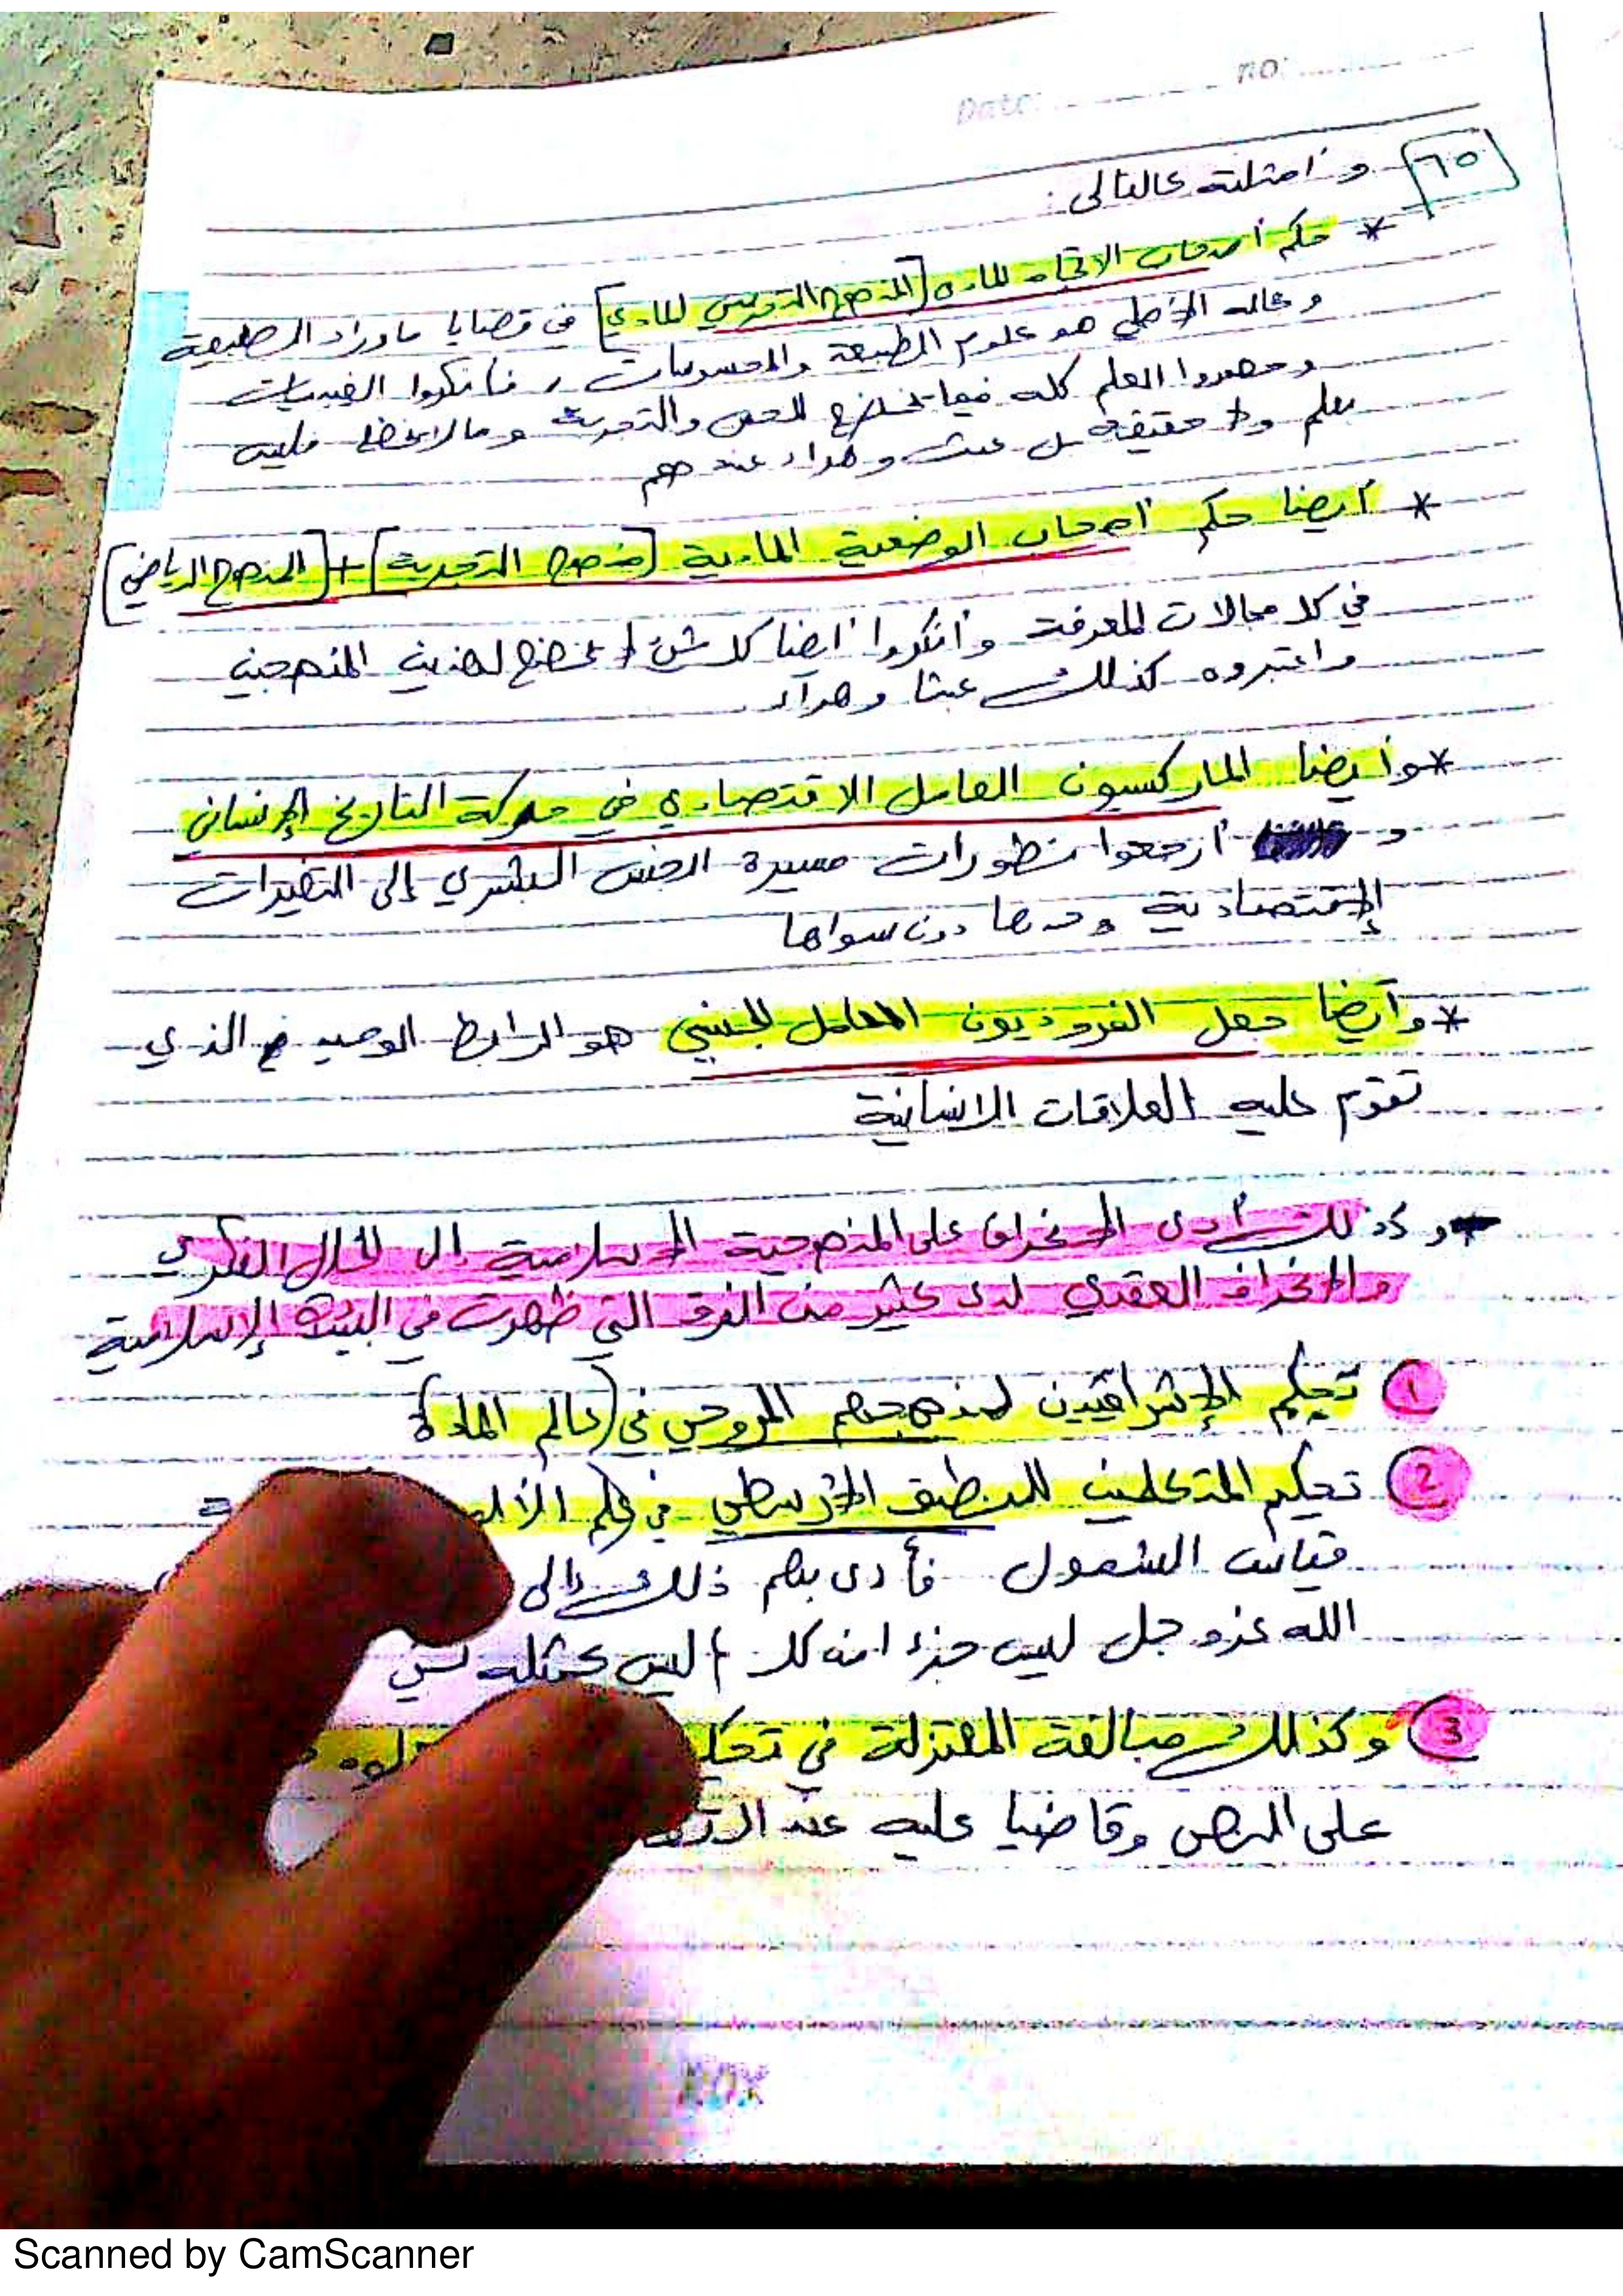 no:
Date:
٦٥ و امثلته كالتالى :
* حكم أصحاب الاتجاه المادى [المنهج التجريبي المادي] فى قضايا ما وراء الطبيعة
و مجاله الأصلي هو علوم الطبيعة والمحسوسات ، فأنكروا الغيبيات
وحصروا العلم كله فيما يخضع للحس والتجربة وما لا يخضع فليس
بعلم ولا حقيقة بل عبث وهراء عندهم
* أيضا حكم أصحاب الوضعية المادية [منهج التجربة] + [المنهج الرياضي]
في كل مجالات المعرفة وأنكروا أيضا كل شئ لا يخضع لهذين المنهجين
واعتبروه كذلك عبثا وهراء .
* وأيضا الماركسيون العامل الاقتصادي في حركة التاريخ الإنساني
و أرجعوا تطورات مسيرة الجنس البشري إلى التغيرات
الإقتصادية وحدها دون سواها
* وأيضا جعل الفرويديون العامل الجنسي هو الرابط الوحيد الذي
تقوم عليه العلاقات الانسانية
وكذلك أدى الانحراف على المنهجية الاسلامية إلى الخلل الفكري
والانحراف العقدي لدى كثير من الفرق التي ظهرت في البيئة الإسلامية
١ تحكيم الإشراقيين لمنهجهم الروحي في (عالم المادة)
2 تحكيم المتكلمين للمنطق الأرسطي في علم
قياس الشمول فأدى بهم ذلك إلى
الله عز وجل ليس جزءا منه كلا ليس كمثله شئ
3 وكذلك مبالغة المعتزلة في
على النص وقاضيا عليه عند
BOX
Scanned by CamScanner